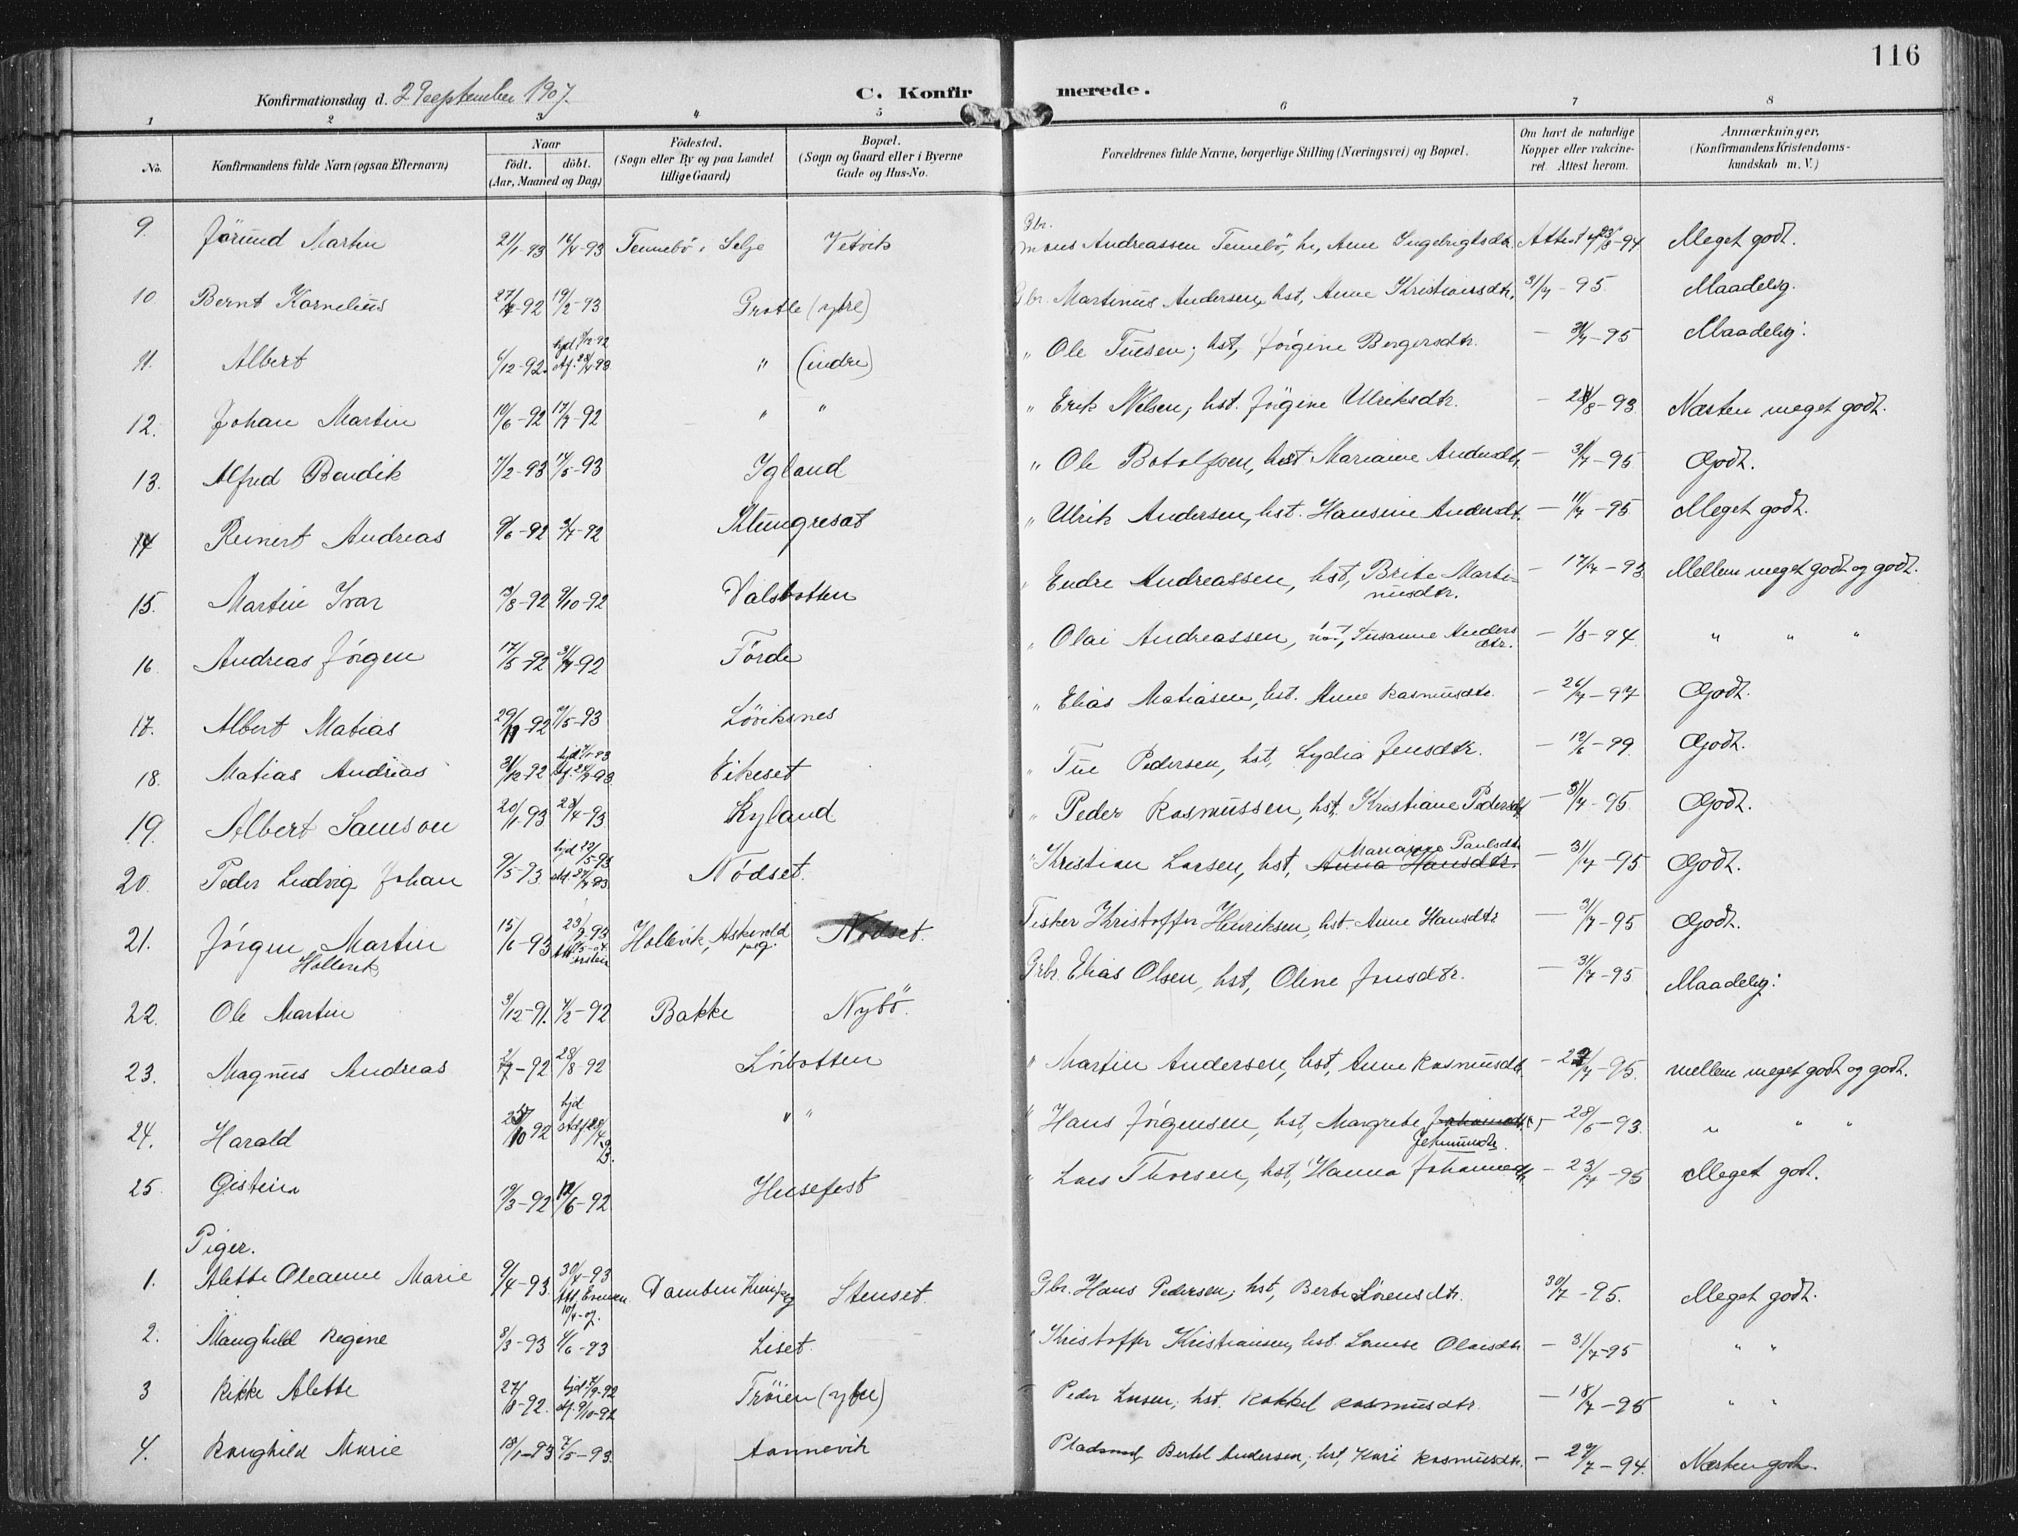 116
Konfirmationsdag d. 29 September 1907.
C. Konfirmerede.
1 2 3 4 5 6 7 8
No. Konfirmandens fulde Navn (ogsaa Efternavn) Naar født. døbt. (Aar, Maaned og Dag) Födested. (Sogn eller By og paa Landet tillige Gaard) Bopæl. (Sogn og Gaard eller i Byerne Gade og Hus-No. Forældrenes fulde Navne, borgerlige Stilling (Næringsvei) og Bopæl. Om havt de naturlige Kopper eller vakcineret. Attest herom. Anmærkninger, (Konfirmandens Kristendomskundskab m. V.)
9. Jörund Martin 21/1-93 16/4-93 Tennebö i Selje Vetvik Gbr. Mons Andreassen Tennebö, h., Anne Ingebrigtsdtr. Attest -94 Meget godt.
10 Bernt Kornelius 27/ -92 19/2-93 Grotle (ytre) Gbr. Martinus Andersen, hst, Anne Kristiansdtr, 31/7-95 Maadelig.
11. Albert 6/12-92 hjd -92 Af. -93 " (indre) " Ole Tuesen; hst, Jørgine Bergersdtr. - 31/7-95 Maadelig.
12. Johan Martin 10/6-92 17/7-92 " " " Erik Nelsen; hst. Jørgine Ulriksdtr. - /8-93 Næsten meget godt.
13. Alfred Bendik 7/2-93 14/5-93 Igland " Ole Botolfsen, hst Mariane Andersdtr - 31/7-95 Godt.
14 Reinert Andreas 9/6-92 3/7-92 Klungresæt " Ulrik Andersen, hst. Hansine Andersdtr. - 11/7-95 Meget godt.
15. Martin Ivar /8-92 9/10-92 Dalsbotten " Endre Andreassen, hst, Brite Martinusdtr. - 17/7-93 Mellem meget godt og godt.
16 Andreas Jørgen 17/5-92 31/7-92 Förde " Olai Andreassen, hst, Susanne Andersdtr. - 1/8-94 " " "
17. Albert Matias 29/11-92 7/5-93 Löviksnes " Elias Matiasen, hst. Anne Rasmusdtr. - 26/7-97 Godt.
18. Matias Andreas 31/12-92 hjd -93 Af. -93 Eikeset " Tue Pedersen, hst, Lydia Jensdtr. - 12/6-99 Godt.
19. Albert Samson 20/1-93 23/4-93 Ryland " Peder Rasmussen, hst. Kristiane Pedersdtr - 31/7-95. Godt.
20. Peder Ludvig Johan 9/5-93 hjd 22/5-93 Nödset. " Kristian Larsen, hst, Anna Hansdtr. Mariane Paulsdtr - 31/7-95 Godt.
21. Jørgen Martin Hollevik 15/6-93 23/7-93 Hollevik, Askevold prg. Nödset. Fisker Kristoffer Henriksen, hst. Anne Hansdtr - 31/7-95 Godt.
22. Ole Martin 3/12-91. 7/2-92 Bakke Nybö. Gbr. Elias Olsen, hst, Oline Jensdtr. - 31/7-95 Maadelig.
23. Magnus Andreas 2/7-92 28/8-92 Lörbotten " Martin Andersen, hst, Anne Rasmusdtr. - /7-95. mellem meget godt og godt.
24. Harald 25/10 92 hjd " " " Hans Jørgensen, hst, Margrete - 28/6-93. " " "
25. Gistein 19/3-92 12/6-92 Husefest " Lars Thorsen, hst, Hanna Johannesdtr - 23/7-95 Meget godt.
Piger.
1. Alette Oleanne Marie 9/4-93. 30/4-93 Stenset. Gbr. Hans Pedersen; hst, Berte Sörensdtr. 30/7-95. Meget godt.
2. Maughild Regine 8/3-93 4/6-93 Liset. " Kristoffer Kristiansen, hst. Lovise Olaisdtr. - 31/7-95 " "
3 Rikke Alette 27/8-92. hjd -92 df. 9/10-92 Tröien (ytre) " Peder Larsen, hst. Rakkel Rasmusdtr. - 18/7-95 " "
4. Ragnhild Marie 18/1-93 7/5-93. Aannevik Pladsmd. Bertel Andersen, hst, Kari Rasmusdtr. - 29/7-94. Næsten godt.